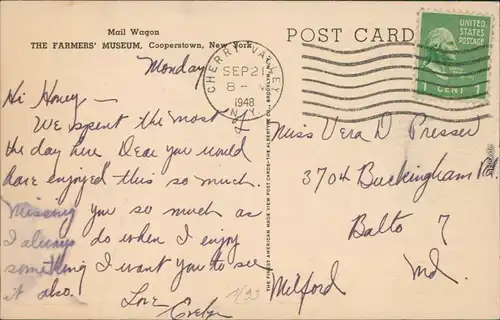 Mail Wagon
THE FARMERS' MUSEUM, Cooperstown, New York.
POST CARD
UNITED
STATES
POSTAGE
1 CENT 1
CHERRY VALLEY
SEP 21
8-
1948
N.Y.
Monday
Hi Honey –
We spent the most of
the day here. Dear you would
have enjoyed this so much.
Missing you so much as
I always do when I enjoy
something I want you to see
it also.
Love
THE FINEST AMERICAN MADE VIEW POSTCARDS—THE ALBERTYPE CO., BROOKLYN, N.Y.
Miss Vera D Presser
3704 Buckingham Rd.
Balto 7
Milford Md.